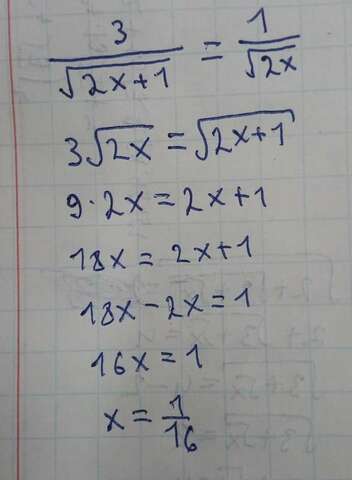 3/√(2x+1) = 1/√(2x)
3√(2x) = √(2x+1)
9·2x = 2x+1
18x = 2x+1
18x-2x = 1
16x = 1
x = 1/16